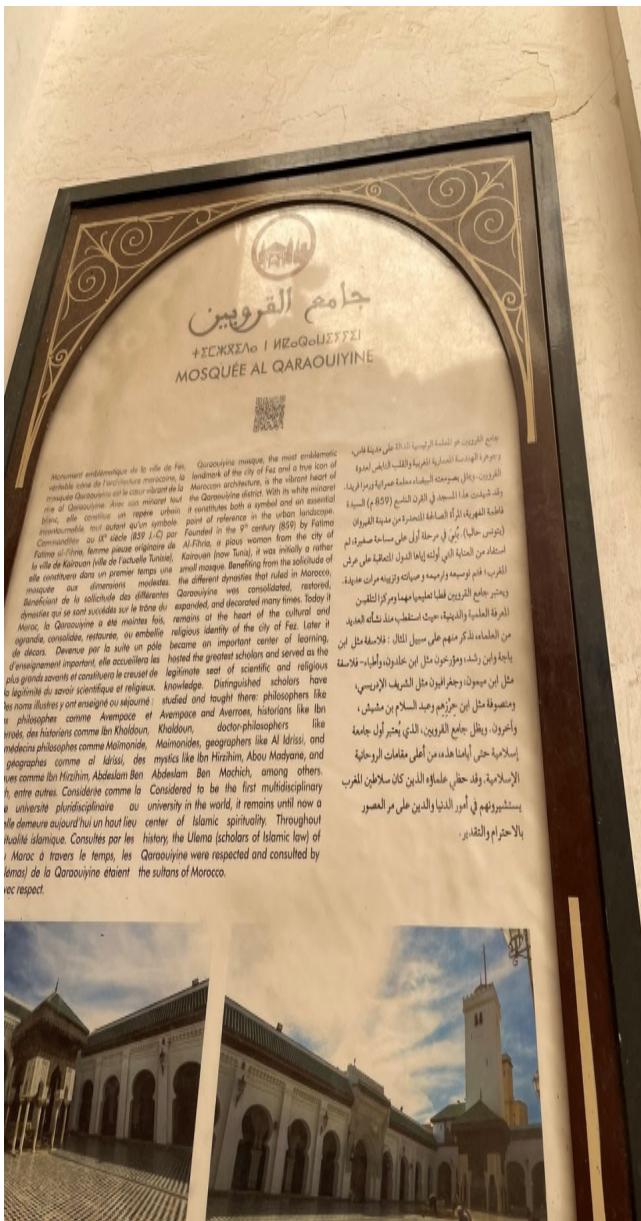 جامع القرويين
ⵜⵉⵎⵣⴳⵉⴷⴰ ⵏ ⵍⵇⴰⵕⴰⵡⵉⵢⵉⵏ
MOSQUÉE AL QARAOUIYINE
Monument emblématique de la ville de Fès,
véritable icône de l'architecture marocaine, la
mosquée Qaraouiyine est le cœur vibrant de la
rive al Qaraouiyine. Avec son minaret tout
blanc, elle constitue un repère urbain
incontournable tout autant qu'un symbole.
Commanditée au IXᵉ siècle (859 J.-C) par
Fatima al-Fihria, femme pieuse originaire de
la ville de Kairouan (ville de l'actuelle Tunisie),
elle constituera dans un premier temps une
mosquée aux dimensions modestes.
Bénéficiant de la sollicitude des différentes
dynasties qui se sont succédés sur le trône du
Maroc, la Qaraouiyine a été maintes fois,
agrandie, consolidée, restaurée, ou embellie
de décors. Devenue par la suite un pôle
d'enseignement important, elle accueillera les
plus grands savants et constituera le creuset de
la légitimité du savoir scientifique et religieux.
Des noms illustres y ont enseigné ou séjourné :
philosophes comme Avempace et
des historiens comme Ibn Khaldoun,
médecins philosophes comme Maïmonide,
géographes comme al Idrissi, des
comme Ibn Hirzihim, Abdeslam Ben
entre autres. Considérée comme la
université pluridisciplinaire au
elle demeure aujourd'hui un haut lieu
islamique. Consultés par les
Maroc à travers le temps, les
de la Qaraouiyine étaient
avec respect.
Qaraouiyine mosque, the most emblematic
landmark of the city of Fez and a true icon of
Moroccan architecture, is the vibrant heart of
the Qaraouiyine district. With its white minaret
it constitutes both a symbol and an essential
point of reference in the urban landscape.
Founded in the 9ᵗʰ century (859) by Fatima
Al-Fihria, a pious woman from the city of
Kairouan (now Tunis), it was initially a rather
small mosque. Benefiting from the solicitude of
the different dynasties that ruled in Morocco,
Qaraouiyine was consolidated, restored,
expanded, and decorated many times. Today it
remains at the heart of the cultural and
religious identity of the city of Fez. Later it
became an important center of learning,
hosted the greatest scholars and served as the
legitimate seat of scientific and religious
knowledge. Distinguished scholars have
studied and taught there: philosophers like
Avempace and Averroes, historians like Ibn
Khaldoun, doctor-philosophers like
Maimonides, geographers like Al Idrissi, and
mystics like Ibn Hirzihim, Abou Madyane, and
Abdeslam Ben Machich, among others.
Considered to be the first multidisciplinary
university in the world, it remains until now a
center of Islamic spirituality. Throughout
history, the Ulema (scholars of Islamic law) of
Qaraouiyine were respected and consulted by
the sultans of Morocco.
جامع القرويين هو المعلمة الرئيسية الدالة على مدينة فاس،
وجوهرة الهندسة المعمارية المغربية والقلب النابض لعدوة
القرويين. ويظل بصومعته البيضاء معلمة عمرانية ورمزا فريدا.
وقد شيدت هذا المسجد في القرن التاسع (859 م) السيدة
فاطمة الفهرية، المرأة الصالحة المتحدرة من مدينة القيروان
(بتونس حاليا). بُنِيَ في مرحلة أولى على مساحة صغيرة، ثم
استفاد من العناية التي أولته إياها الدول المتعاقبة على عرش
المغرب؛ فتم توسيعه وترميمه وصيانته وتزيينه مرات عديدة.
ويعتبر جامع القرويين قطبا تعليميا مهما ومركزا لتلقين
المعرفة العلمية والدينية، حيث استقطب منذ نشأته العديد
من العلماء، نذكر منهم على سبيل المثال : فلاسفة مثل ابن
باجة وابن رشد، ومؤرخون مثل ابن خلدون، وأطباء- فلاسفة
مثل ابن ميمون، وجغرافيون مثل الشريف الإدريسي،
ومتصوفة مثل ابن حرزهم وعبد السلام بن مشيش ،
وآخرون. ويظل جامع القرويين، الذي يُعتبر أول جامعة
إسلامية حتى أيامنا هذه، من أعلى مقامات الروحانية
الإسلامية. وقد حظي علماؤه الذين كان سلاطين المغرب
يستشيرونهم في أمور الدنيا والدين على مر العصور
بالاحترام والتقدير.